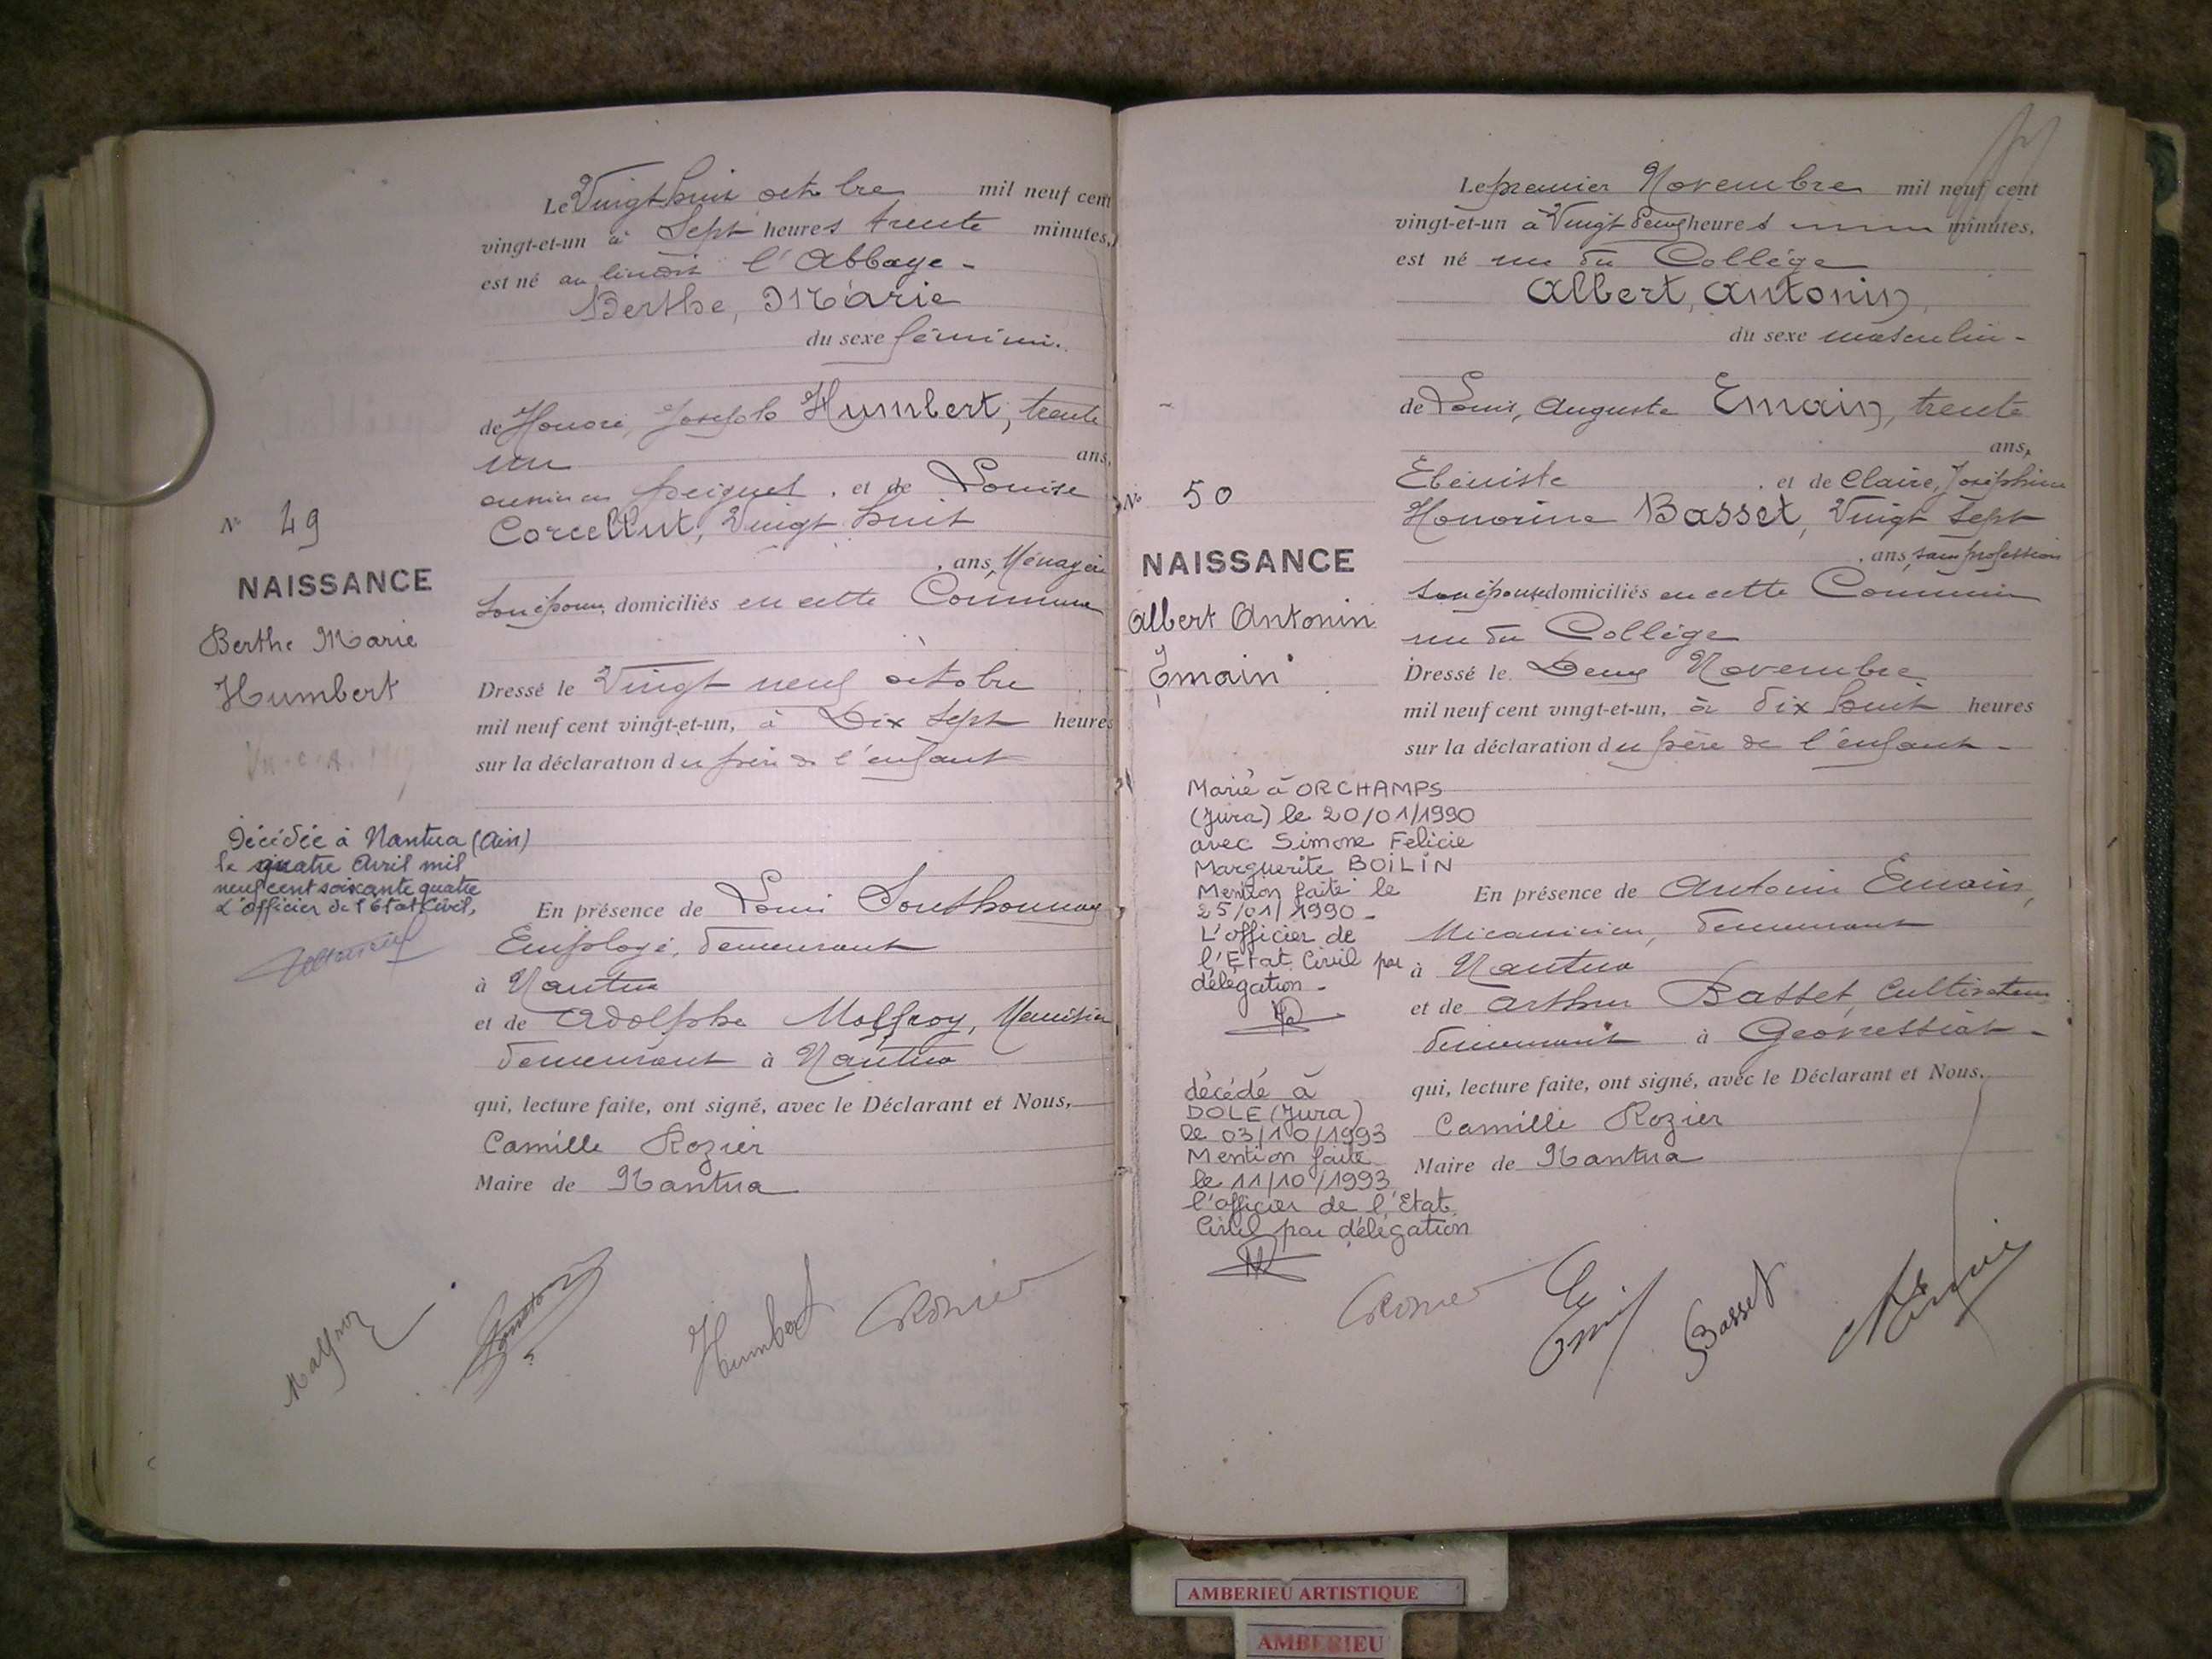 Le Vingt huit octobre mil neuf cent
vingt-et-un à Sept heures trente minutes,
est né au lieudit l'Abbaye -
Berthe, Marie
du sexe féminin.
de Honoré, Joseph Humbert, trente
un ans,
ouvrier en peignes, et de Louise
Corcellut, Vingt huit
, ans, Ménagère
son épouse, domiciliés en cette Commune
Nº 49
NAISSANCE
Berthe Marie
Humbert
Dressé le Vingt neuf octobre
mil neuf cent vingt-et-un, à Dix sept heures
sur la déclaration du père de l'enfant
Décédée à Nantua (Ain)
le quatre Avril mil
neuf cent soixante quatre
L'officier de l'Etat Civil,
En présence de Louis Southonnax
Employé, demeurant
à Nantua
et de Adolphe Molfroy, Menuisier
demeurant à Nantua
qui, lecture faite, ont signé, avec le Déclarant et Nous,
Camille Rozier
Maire de Nantua
Humbert
Le premier Novembre mil neuf cent
vingt-et-un à Vingt deux heures minutes,
est né rue du Collège
Albert, Antonin,
du sexe masculin -
de Louis, Auguste Emain, trente
ans,
Ebéniste, et de Claire, Joséphine
Honorine Basset, Vingt sept
, ans, sans profession
son épouse domiciliés en cette Commune
rue du Collège
Nº 50
NAISSANCE
Albert Antonin
Emain
Dressé le Deux Novembre
mil neuf cent vingt-et-un, à dix huit heures
sur la déclaration du père de l'enfant -
Marié à ORCHAMPS
(Jura) le 20/01/1990
avec Simone Félicie
Marguerite BOILIN
Mention faite le
25/01/1990 -
L'officier de
l'Etat Civil par
délégation -
En présence de Antonin Emain,
Mécanicien, demeurant
à Nantua
et de Arthur Basset, Cultivateur
demeurant à Geovressiat -
qui, lecture faite, ont signé, avec le Déclarant et Nous,
Camille Rozier
Maire de Nantua
décédé à
DOLE (Jura)
le 03/10/1993
Mention faite
le 11/10/1993
l'officier de l'Etat
Civil par délégation
Basset
AMBERIEU ARTISTIQUE
AMBERIEU